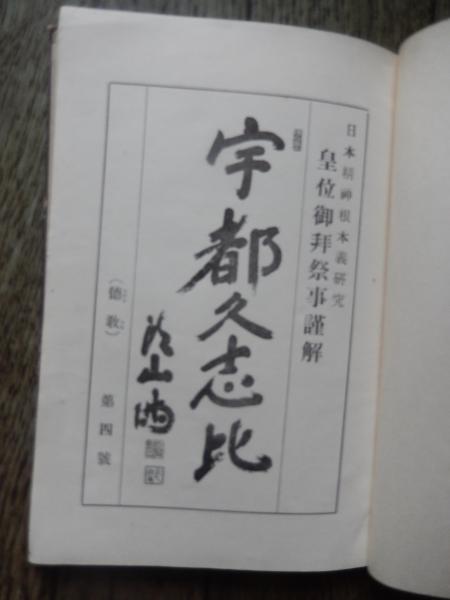 日本精神根本義研究
皇位御拜祭事謹解
宇都久志比
(德教)
第四號